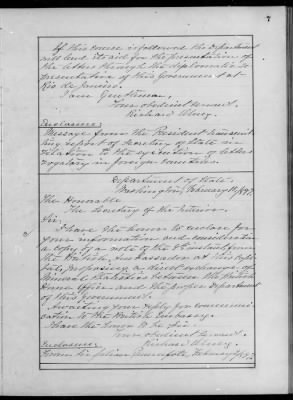 7
If this course is followed the Department
will lend its aid for the presentation of
the letters through the diplomatic re-
presentative of this Government at
Rio de Janeiro.
I am Gentlemen,
Your obedient servant,
Richard Olney.
Enclosure:
Message from the President transmit-
ting report of Secretary of State in
relation to the execution of letters
rogatory in foreign countries.
Department of State,
Washington, February 11, 1897
The Honorable
The Secretary of the Interior.
Sir:
I have the honor to enclose for
your information and consideration
a copy of a note of the instant from
the British Ambassador at this Capi-
tal, proposing a direct exchange of
Mineral Statistics between the British
Home Office and the proper Department
of this Government.
Awaiting your reply for communi-
cation to the British Embassy.
I have the honor to be, Sir,
Your obedient servant,
Richard Olney.
Enclosure:
From Sir Julian Pauncefote, February